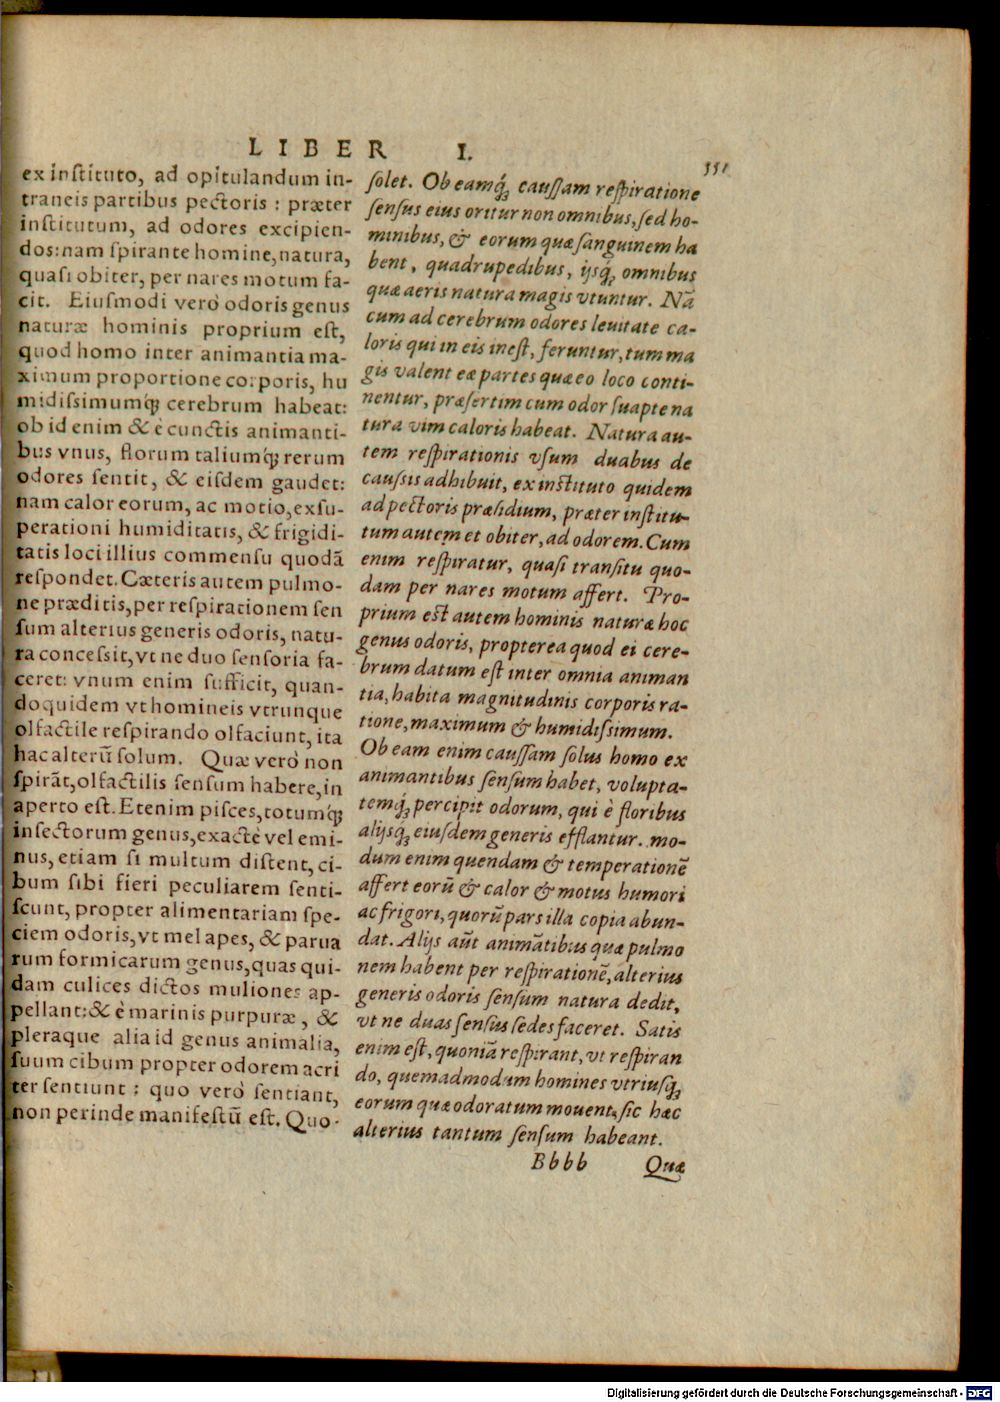 LIBER I.
551
ex instituto, ad opitulandum in-
traneis partibus pectoris : præter
institutum, ad odores excipien-
dos: nam spirante homine, natura,
quasi obiter, per nares motum fa-
cit. Eiusmodi verò odoris genus
naturæ hominis proprium est,
quod homo inter animantia ma-
ximum proportione corporis, hu
midissimumq́; cerebrum habeat:
ob id enim & è cunctis animanti-
bus vnus, florum taliumq́; rerum
odores sentit, & eisdem gaudet:
nam calor eorum, ac motio, exsu-
perationi humiditatis, & frigidi-
tatis loci illius commensu quodā
respondet. Cæteris autem pulmo-
ne præditis, per respirationem sen
sum alterius generis odoris, natu-
ra concessit, vt ne duo sensoria fa-
ceret: vnum enim sufficit, quan-
doquidem vt homineis vtrunque
olfactile respirando olfaciunt, ita
hac alterū solum. Quæ verò non
spirāt, olfactilis sensum habere, in
aperto est. Etenim pisces, totumq́;
insectorum genus, exactè vel emi-
nus, etiam si multum distent, ci-
bum sibi fieri peculiarem senti-
scunt, propter alimentariam spe-
ciem odoris, vt mel apes, & parua
rum formicarum genus, quas qui-
dam culices dictos muliones ap-
pellant: & è marinis purpuræ, &
pleraque alia id genus animalia,
suum cibum propter odorem acri
ter sentiunt : quo verò sentiant,
non perinde manifestū est. Quo-
solet. Ob eamq́; caussam respiratione
sensus eius oritur non omnibus, sed ho-
minibus, & eorum quæ sanguinem ha
bent, quadrupedibus, ijsq́; omnibus
quæ aeris natura magis vtuntur. Nā
cum ad cerebrum odores leuitate ca-
loris qui in eis inest, feruntur, tum ma
gis valent eæ partes quæ eo loco conti-
nentur, præsertim cum odor suapte na
tura vim caloris habeat. Natura au-
tem respirationis vsum duabus de
caussis adhibuit, ex instituto quidem
ad pectoris præsidium, præter institu-
tum autem et obiter, ad odorem. Cum
enim respiratur, quasi transitu quo-
dam per nares motum affert. Pro-
prium est autem hominis naturæ hoc
genus odoris, propterea quod ei cere-
brum datum est inter omnia animan
tia, habita magnitudinis corporis ra-
tione, maximum & humidissimum.
Ob eam enim caussam solus homo ex
animantibus sensum habet, volupta-
temq́; percipit odorum, qui è floribus
alijsq́; eiusdem generis efflantur. mo-
dum enim quendam & temperationē
affert eorū & calor & motus humori
ac frigori, quorū pars illa copia abun-
dat. Alijs aūt animātibus quæ pulmo
nem habent per respirationē, alterius
generis odoris sensum natura dedit,
vt ne duas sensus sedes faceret. Satis
enim est, quoniā respirant, vt respiran
do, quemadmodum homines vtriusq́;
eorum quæ odoratum mouent, sic hæc
alterius tantum sensum habeant.
Bbbb Quæ
Digitalisierung gefördert durch die Deutsche Forschungsgemeinschaft - DFG